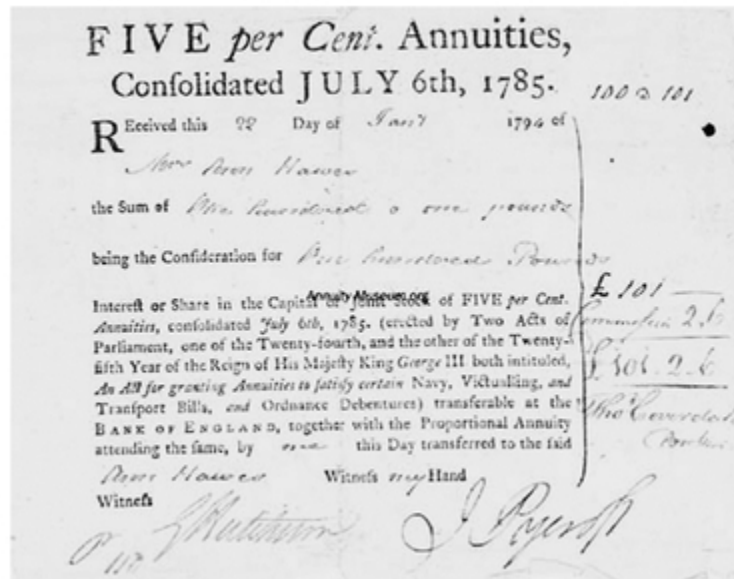 FIVE per Cent. Annuities,
Conſolidated JULY 6th, 1785.
100 @ 101
REceived this 22 Day of Jany 1794 of
Mrs Ann Hawes
the Sum of One hundred & one pounds
being the Conſideration for One hundred Pounds
AnnuityMuseum.org
Intereſt or Share in the Capital or Joint Stock of FIVE per Cent.
Annuities, conſolidated July 6th, 1785. (erected by Two Acts of
Parliament, one of the Twenty-fourth, and the other of the Twenty-
fifth Year of the Reign of His Majeſty King George III both intituled,
An Act for granting Annuities to ſatisfy certain Navy, Victualling, and
Transport Bills, and Ordnance Debentures) transferable at the
BANK OF ENGLAND, together with the Proportional Annuity
attending the ſame, by me this Day transferred to the ſaid
Ann Hawes Witneſs my Hand
Witneſs
£ 101
Commiſsion 2.6
£ 101.2.6
Thos Coverdale